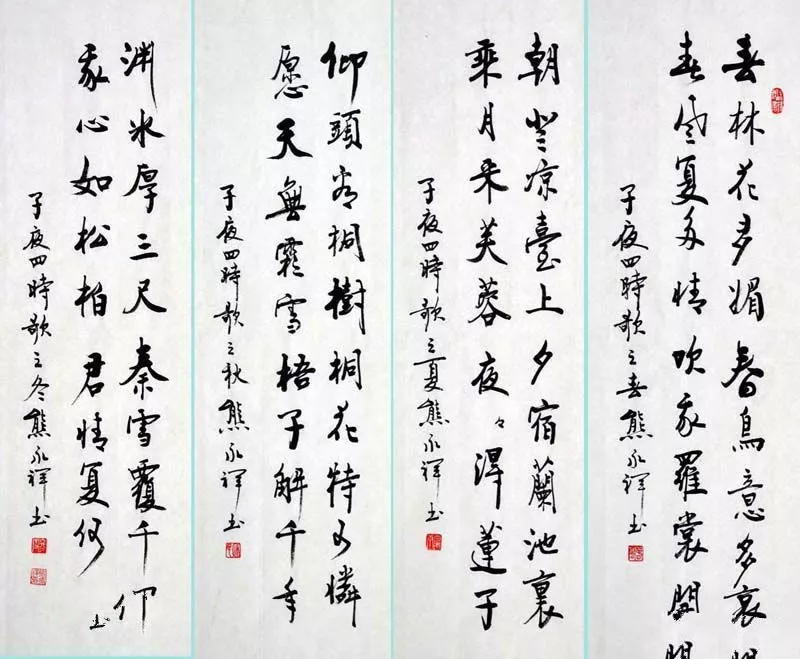 春林花多媚春鳥意多哀
春風復多情吹我羅裳開
子夜四時歌之春熊永書
朝登涼臺上夕宿蘭池裏
乘月采芙蓉夜々得蓮子
子夜四時歌之夏熊永書
仰頭看桐樹桐花特可憐
愿天無霜雪梧子解千年
子夜四時歌之秋熊永書
淵冰厚三尺素雪覆千
我心如松柏君情復何
子夜四時歌之冬熊永書